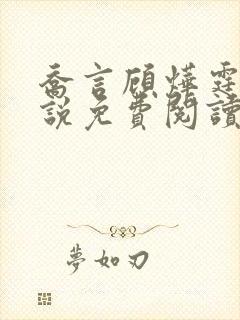 喬言顧燁霆
說免費閱讀
夢如刃